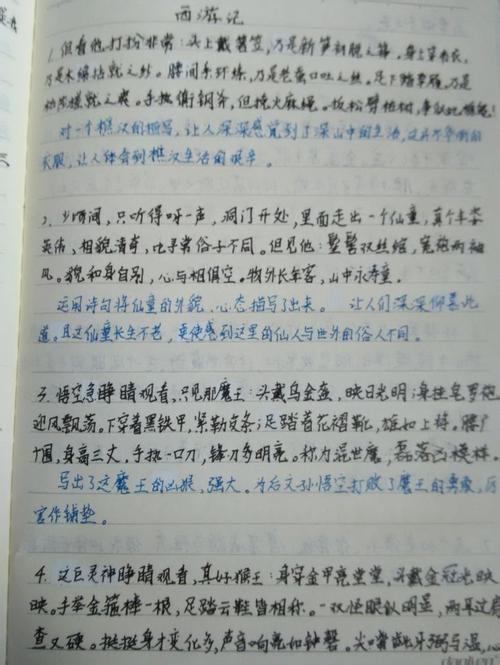 西游记
1. 但看他打扮非常：头上戴箬笠，乃是新笋初脱之箨。身上穿布衣，
乃是木绵捻就之纱。腰间系环绦，乃是老蚕口吐之丝。足下踏草履，乃是
就之爽。手执衡钢斧，担挽火麻绳。扳松劈枯树，争似此樵能！
对一个樵汉的描写，让人深深感觉到了深山中的生活，
衣服，让人体会到樵汉生活的艰辛。
2. 少顷间，只听得呀一声，洞门开处，里面走出一个仙童，真个丰姿
英伟，相貌清奇，比寻常俗子不同。但见他：髽髻双丝绾，宽袍两袖
风。貌和身自别，心与相俱空。物外长年客，山中永寿童。
运用诗句将仙童的外貌、心态描写了出来。让人们深深仰慕此
道。且这仙童长生不老，更使感到这里的仙人与世外的俗人不同。
3. 悟空急睁睛观看，只见那魔王：头戴乌金盔，映日光明；身挂皂罗袍，
迎风飘荡。下穿着黑铁甲，紧勒皮条；足踏着花褶靴，雄如上将。腰
十围，身高三丈，手执一口刀，锋刃多明亮。称为混世魔，磊落凶模样。
写出了这魔王的凶狠，强大。为后文孙悟空打败了魔王的
作铺垫。
4. 这巨灵神睁睛观看，真好猴王：身穿金甲亮堂堂，头戴金冠光映
映。手举金箍棒一根，足踏云鞋皆相称。一双怪眼似明星，两耳过肩
查又硬。挺挺身才变化多，声音响亮如钟磬。尖嘴龇牙弼马温，